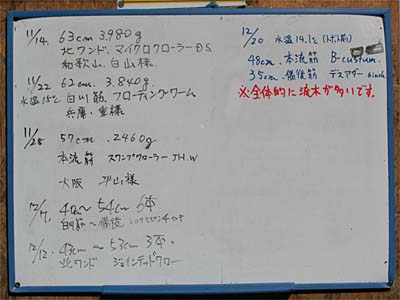 11/14. 63cm 3.980g
北ワンド、マイクロクローラーDS
和歌山. 白山様.
11/22 62cm. 3.840g
水温15℃ 白川筋. フローティングワーム
兵庫・重様
11/25 57cm .2460g
本流筋 スワンプクローラー JH.W
大阪 平山様
12/7. 40cm~54cm 6本
白川筋~備後
12/12. 43cm~53cm 3本.
北ワンド ジョインテッドクロー
12/20 水温14.1℃(トボトスロ)
48cm.本流筋 B-custum.
35cm.備後筋 デスアダー6inch
※全体的に流木が多いです。